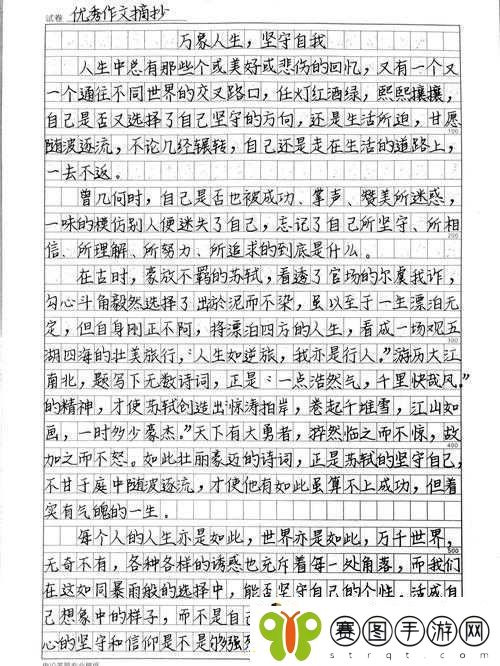 试卷 优秀作文摘抄
万象人生，坚守自我
人生中总有那些个或美好或悲伤的回忆，又有一个又
一个通往不同世界的交叉路口，任灯红酒绿，熙熙攘攘，
自己是否又选择了自己坚守的方向，还是生活所迫，甘愿
随波逐流，不论几经辗转，自己还是走在生活的道路上，
100
一去不返。
曾几何时，自己是否也被成功、掌声、赞美所迷惑，
一味的模仿别人便迷失了自己，忘记了自己所坚守、所相
200
信、所理解、所努力、所追求的到底是什么。
在古时，豪放不羁的苏轼，看透了官场的尔虞我诈，
勾心斗角毅然选择了出於泥而不染，虽以至于一生漂泊无
定，但自身刚正不阿，将漂泊四方的人生，看成一场观五
300
湖四海的壮美旅行，“人生如逆旅，我亦是行人。”游历大江
南北，题写下无数诗词，正是“一点浩然气，千里快哉风。”
的精神，才使苏轼创造出“惊涛拍岸，卷起千堆雪，江山如
画，一时多少豪杰。”天下有大勇者，猝然临之而不惊，故
400
加之而不怒。如此壮丽豪迈的诗词，正是苏轼的坚守自己，
不甘于庭中随波逐流，才使他有如此虽算不上成功，但着
实有气魄的一生。
每个人的人生亦是如此，世界亦是如此，万千世界，
500
无奇不有，各种各样的诱惑也充斥着每一处角落，而我们
在这如同暴雨般的选择中，能否坚守自己的个性，活成自
己想象中的样子，而不是自己
心的坚守和信仰是不是够强
赛图手游网